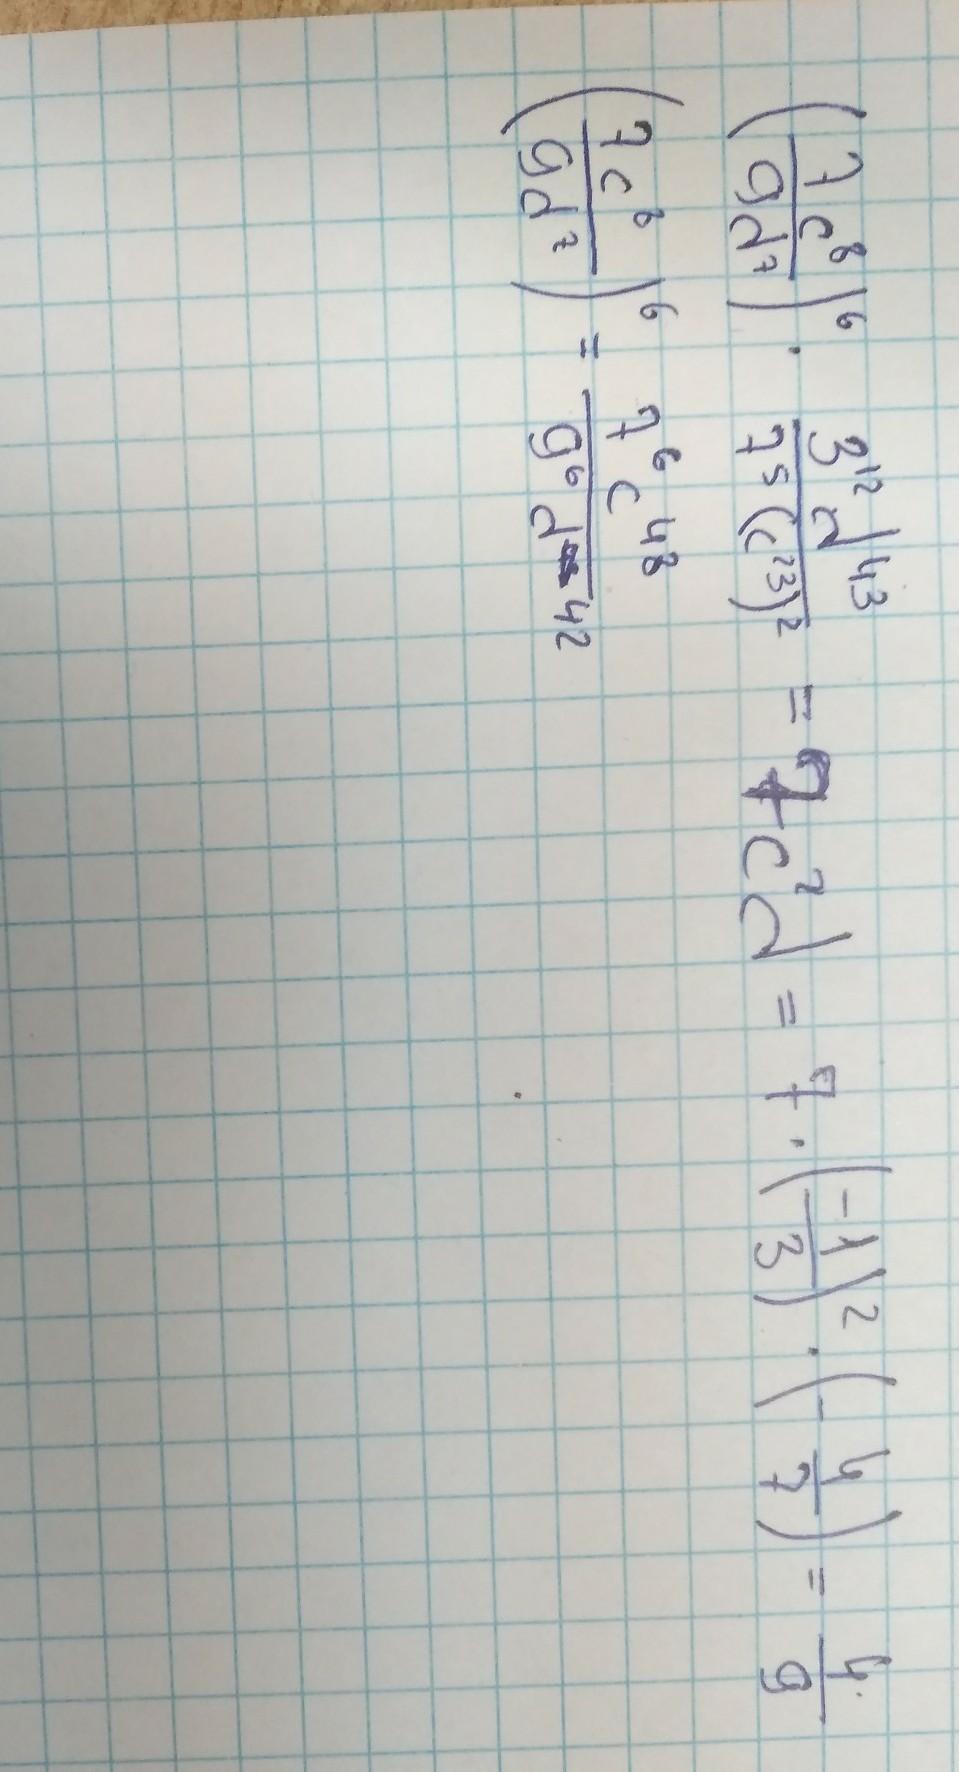 (7c⁸/9d⁷)⁶ · 3¹²d⁴³/7⁵(c²³)² = 7c²d = 7 · (-1/3)² · (-4/7) = 4/9
(7c⁸/9d⁷)⁶ = 7⁶c⁴⁸/9⁶d⁴²